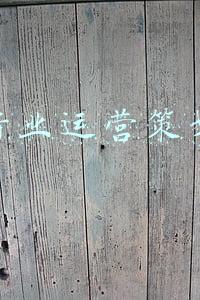 业运营策